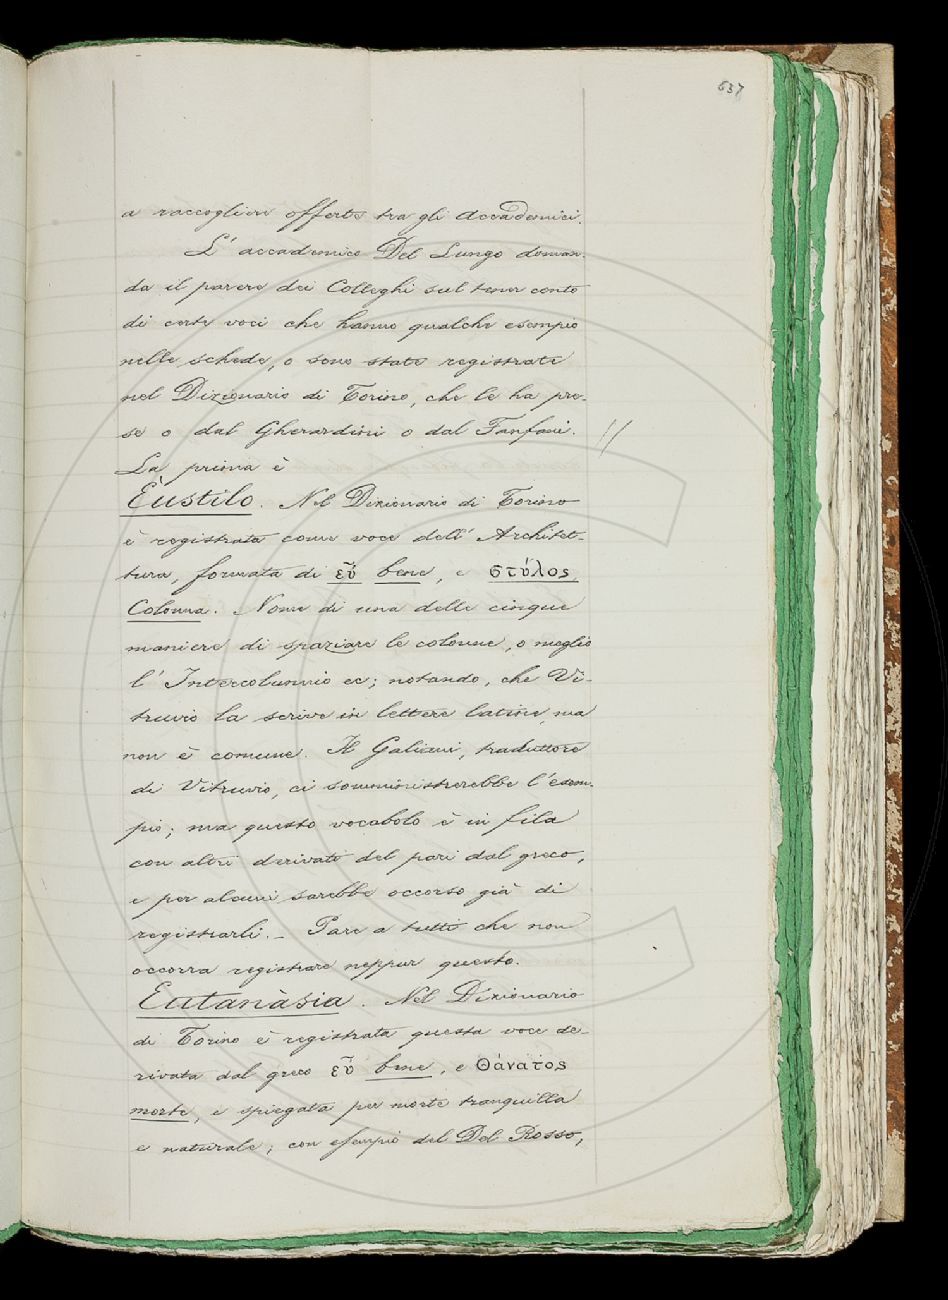 637
a raccogliere offerte tra gli Accademici.
L' accademico Del Lungo doman-
da il parere dei Colleghi sul tener conto
di certe voci che hanno qualche esempio
nelle schede, o sono state registrate
nel Dizionario di Torino, che le ha pre-
se o dal Gherardini o dal Fanfani. //
La prima è
Èustilo. Nel Dizionario di Torino
è registrata come voce dell' Architet-
tura, formata di εὖ bene, e στύλος
Colonna. Nome di una delle cinque
maniere di spaziare le colonne, o meglio
l' Intercolunnio ec; notando, che Vi-
truvio la scrive in lettere latine, ma
non è comune. Il Galiani, traduttore
di Vitruvio, ci somministrerebbe l'esem-
pio; ma questo vocabolo è in fila
con altri derivati del pari dal greco,
e per alcuni sarebbe occorso già di
registrarli. _ Pare a tutti che non
occorra registrare neppur questo.
Eutanàsia. Nel Dizionario
di Torino è registrata questa voce de-
rivata dal greco εὖ bene, e Θάνατος
morte, e spiegata per morte tranquilla
e naturale; con esempio del Del Rosso,